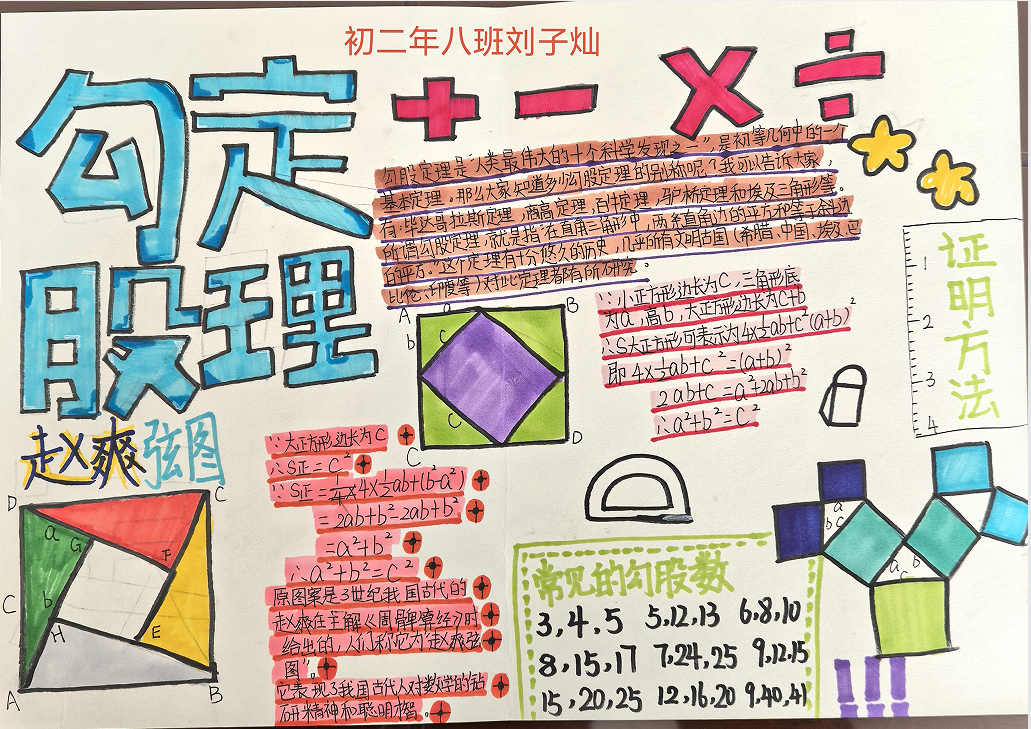 初二年八班刘子灿
勾股定理
+ − × ÷
勾股定理是“人类最伟大的十个科学发现之一”，是初等几何中的一个
基本定理。那么大家知道多少勾股定理的别称呢？我可以告诉大家，
有：毕达哥拉斯定理，商高定理，百牛定理，驴桥定理和埃及三角形等。
所谓勾股定理，就是指“在直角三角形中，两条直角边的平方和等于斜边
的平方。”这个定理有十分悠久的历史，几乎所有文明古国（希腊、中国、埃及、巴
比伦、印度等）对此定理都有所研究。
A
B
b
C
C
C
D
∵小正方形边长为C，三角形底
为a，高b，大正方形边长为C+b
∴S大正方形可表示为4×½ab+c²(a+b)²
即4×½ab+c²=(a+b)²
2ab+c=a²+2ab+b²
∴a²+b²=C²
证明方法
1
2
3
4
赵爽弦图
D
C
a
G
F
C
b
H
E
A
B
∵大正方形边长为C
∴S正=C²
=2ab+b²-2ab+b²
=a²+b²
∴a²+b²=C²
原图案是3世纪我国古代的
赵爽在主解《周髀算经》时
给出的，人们称它为“赵爽弦
图”。
它表现了我国古代人对数学的钻
研精神和聪明才智。
a
b c
a b
c
常见的勾股数
3,4,5 5,12,13 6,8,10
8,15,17 7,24,25 9,12,15
15,20,25 12,16,20 9,40,41